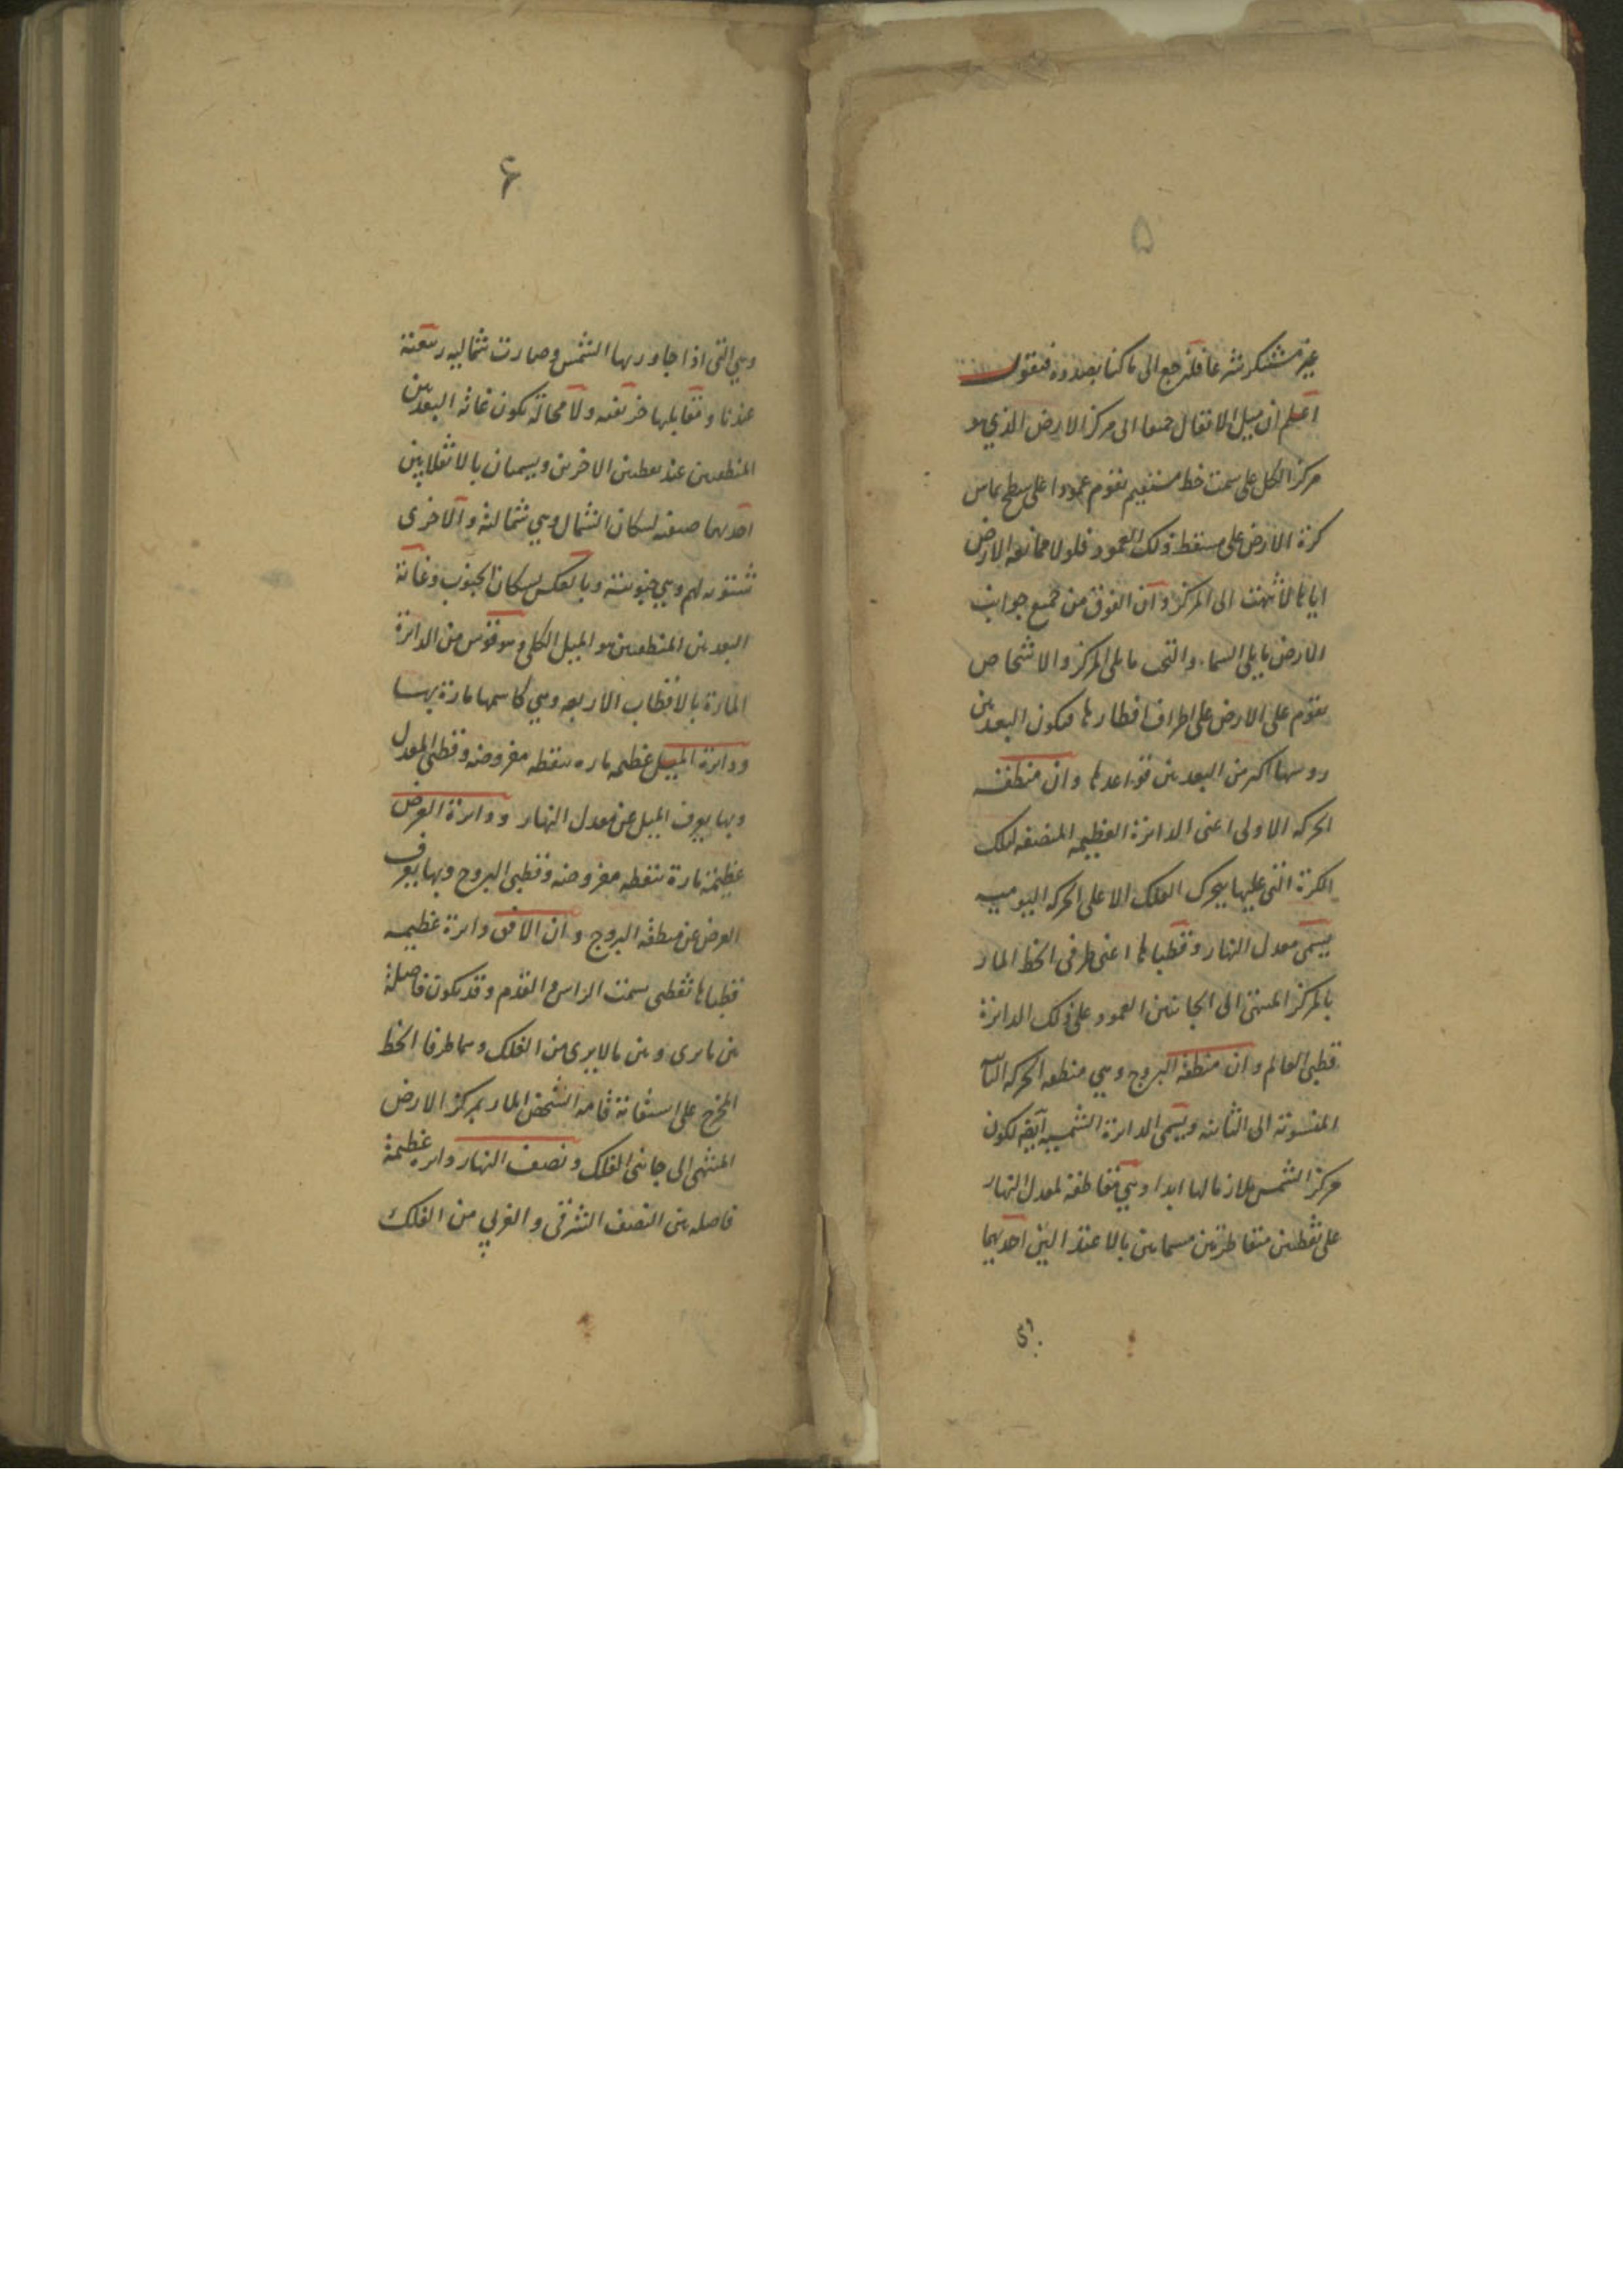 ۵
غير مستنكر شرعا فلنرجع الى ما كنا بصدده فنقول
اعلم ان ميل الاثقال طبعا الى مركز الارض الذي هو
مركز الكل على سمت خط مستقيم يقوم عمودا على سطح يماس
كرة الارض على مسقط ذلك العمود فلولا ممانعة الارض
اياها لانتهت الى المركز وان الفوق من جميع جوانب
الارض ما يلي السماء والتحت ما يلي المركز والاشخاص
تقوم على الارض على اطراف اقطارها فيكون البعد بين
روسها اكبر من البعد بين قواعدها وان منطقة
الحركة الاولى اعنى الدائرة العظيمة المنصفة لتلك
الكرة التي عليها يتحرك الفلك الاعلى الحركة اليومية
يسمى معدل النهار وقطباها اعنى طرفى الخط المار
بالمركز المنتهى الى الجانبين العمود على ذلك الدائرة
قطبى العالم وان منطقة البروج وهي منطقة الحركة
المنسوبة الى الثانية ويسمى الدائرة الشمسية ايضا لكون
مركز الشمس ملازما لها ابدا وهي مقاطعة لمعدل النهار
على نقطتين متقاطرتين مسماتين بالاعتدالين احديهما
۶
وهي التي اذا جاورتها الشمس وصارت شمالية ربيعية
عندنا ومقابلها خريفية ولا محالة يكون غاية البعد بين
المنطقتين عند نقطتين الاخرين ويسميان بالانقلابين
احديهما صيفية لسكان الشمال وهي شمالية والاخرى
شتوية لهم وهي جنوبية وبالعكس لسكان الجنوب وغاية
البعد بين المنطقتين هو الميل الكلي وهو قوس من الدائرة
المارة بالاقطاب الاربعة وهي كاسمها مارة بها
ودائرة الميل عظيمة مارة بنقطة مفروضة وقطبى المعدل
وبها يعرف الميل عن معدل النهار ودائرة العرض
عظيمة مارة بنقطة مفروضة وقطبى البروج وبها يعرف
العرض عن منطقة البروج وان الافق دائرة عظيمة
قطباها نقطتى سمت الراس والقدم وقد يكون فاصلة
بين ما يرى وبين ما لا يرى من الفلك وهما طرفا الخط
المخرج على استقامة قامة الشخص المار بمركز الارض
المنتهى الى جانبى الفلك ونصف النهار دائرة عظيمة
فاصلة بين النصف الشرقى والغربي من الفلك